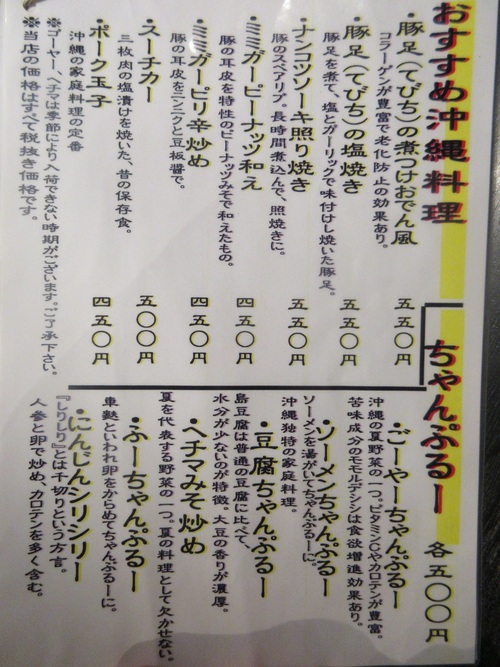 おすすめ沖縄料理
・豚足(てびち)の煮つけおでん風 五五〇円
コラーゲンが豊富で老化防止の効果あり。
・豚足(てびち)の塩焼き 五五〇円
豚足を煮て、塩とガーリックで味付けし焼いた豚足。
・ナンコツソーキ照り焼き 五五〇円
豚のスペアリブ。長時間煮込んで、照焼きに。
・ミミガーピーナッツ和え 四五〇円
豚の耳皮を特性のピーナッツみそで和えたもの。
・ミミガーピリ辛炒め 四五〇円
豚の耳皮をニンニクと豆板醤で。
・スーチカー 五〇〇円
三枚肉の塩漬けを焼いた、昔の保存食。
・ポーク玉子 四五〇円
沖縄の家庭料理の定番
※ゴーヤー、ヘチマは季節により入荷できない時期がございます。ご了承下さい。
※当店の価格はすべて税抜き価格です。
ちゃんぷるー 各五〇〇円
・ごーやーちゃんぷるー
沖縄の夏野菜の一つ。ビタミンCやカロテンが豊富。
苦味成分のモモルデシンは食欲増進効果あり。
・ソーメンちゃんぷるー
ソーメンを湯がいてちゃんぷるーに。
沖縄独特の家庭料理。
・豆腐ちゃんぷるー
島豆腐は普通の豆腐に比べて、
水分が少ないのが特徴。大豆の香りが濃厚。
・ヘチマみそ炒め
夏を代表する野菜の一つ。夏の料理として欠かせない。
・ふーちゃんぷるー
車麩といわれ卵をからめてちゃんぷるーに。
・にんじんシリシリー
『しりしり』とは千切りという方言。
人参と卵で炒め、カロテンを多く含む。